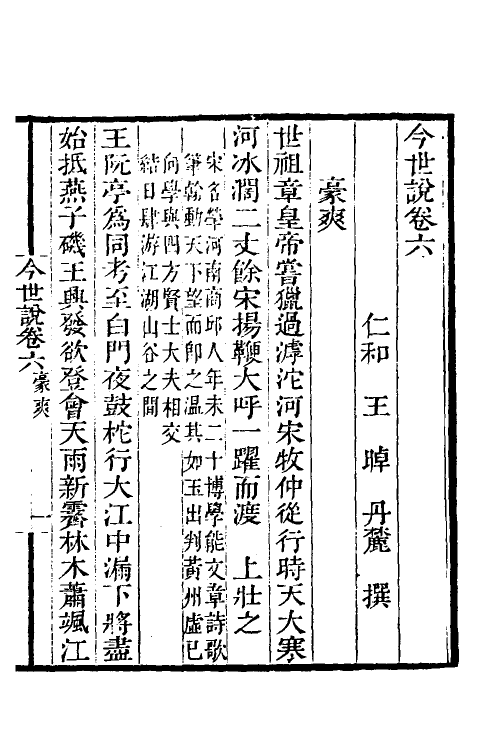 今世說卷六
仁和　王　晫　丹麓　撰
豪爽
世祖章皇帝嘗獵過滹沱河宋牧仲從行時天大寒
河冰濶二丈餘宋揚鞭大呼一躍而渡　上壯之
宋名犖河南商邱人年未二十博學能文章詩歌
筆翰動天下望而卽之溫其如玉出判黃州虛已
向學與四方賢士大夫相交
結日肆游江湖山谷之間
王阮亭爲同考至白門夜鼓柁行大江中漏下將盡
始抵燕子磯王興發欲登會天雨新霽林木蕭颯江
今世說卷六 豪爽
一